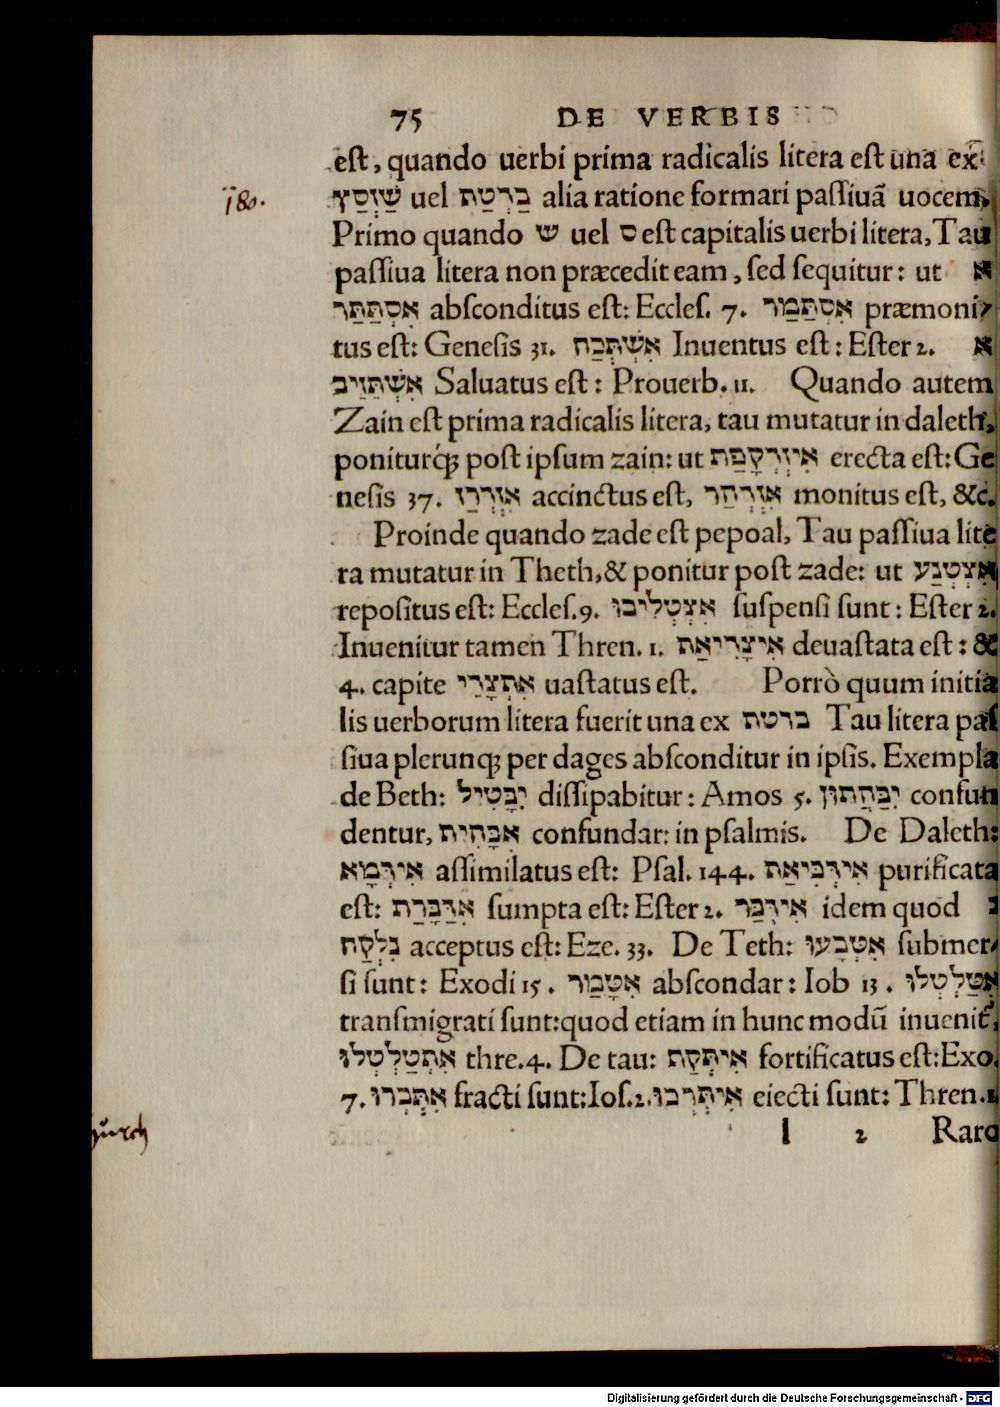 75 DE VERBIS
est, quando uerbi prima radicalis litera est una ex
שׁוְסַץ uel בַּרְטַת alia ratione formari passiuã uocem,
j80.
Primo quando ש uel ס est capitalis uerbi litera, Tau
passiua litera non præcedit eam, sed sequitur: ut א
אִסְתַּתַּר absconditus est: Eccles. 7. אִסְתַּמוּר præmoni-
tus est: Genesis 31. אִשְׁתְּכַח Inuentus est: Ester 2. א
אִשְׁתְּזֵיב Saluatus est: Prouerb. 11. Quando autem
Zain est prima radicalis litera, tau mutatur in daleth,
poniturq́ꝫ post ipsum zain: ut אִיזְדְּקָפַת erecta est: Ge
nesis 37. אִזְדְּרַז accinctus est, אִזְדְּהַר monitus est, &c.
Proinde quando zade est pepoal, Tau passiua lite
ra mutatur in Theth, & ponitur post zade: ut אִצְטְנַע
repositus est: Eccles. 9. אִצְטְלִיבוּ suspensi sunt: Ester 2.
Inuenitur tamen Thren. 1. אִיצְרִיאַת deuastata est: &
4. capite אִתְצָרֵי uastatus est. Porrò quum initia
lis uerborum litera fuerit una ex ברטת Tau litera pas
siua plerunqꝫ per dages absconditur in ipsis. Exempla
de Beth: יִבָּטִיל dissipabitur: Amos 5. יִבַּהֲתוּן confun
dentur, אִבָּהִית confundar: in psalmis. De Daleth:
אִידְּמָא assimilatus est: Psal. 144. אִידְּכִיאַת purificata
est: אִדַּבָּרַת sumpta est: Ester 2. אִידְּבַּר idem quod נ
נִלְקַח acceptus est: Eze. 33. De Teth: אִטְּבָעוּ submer-
si sunt: Exodi 15. אִטָּמוּר abscondar: Iob 13. אִטַּלְטְלוּ
transmigrati sunt: quod etiam in hunc modũ inuenit,
אִתְטַלְטְלוּ thre. 4. De tau: אִיתְּקַף fortificatus est: Exo.
7. אִתְּבָרוּ fracti sunt: Ios. 2. אִיתְּרִכוּ eiecti sunt: Thren. 1
I 2 Raro
Digitalisierung gefördert durch die Deutsche Forschungsgemeinschaft - DFG